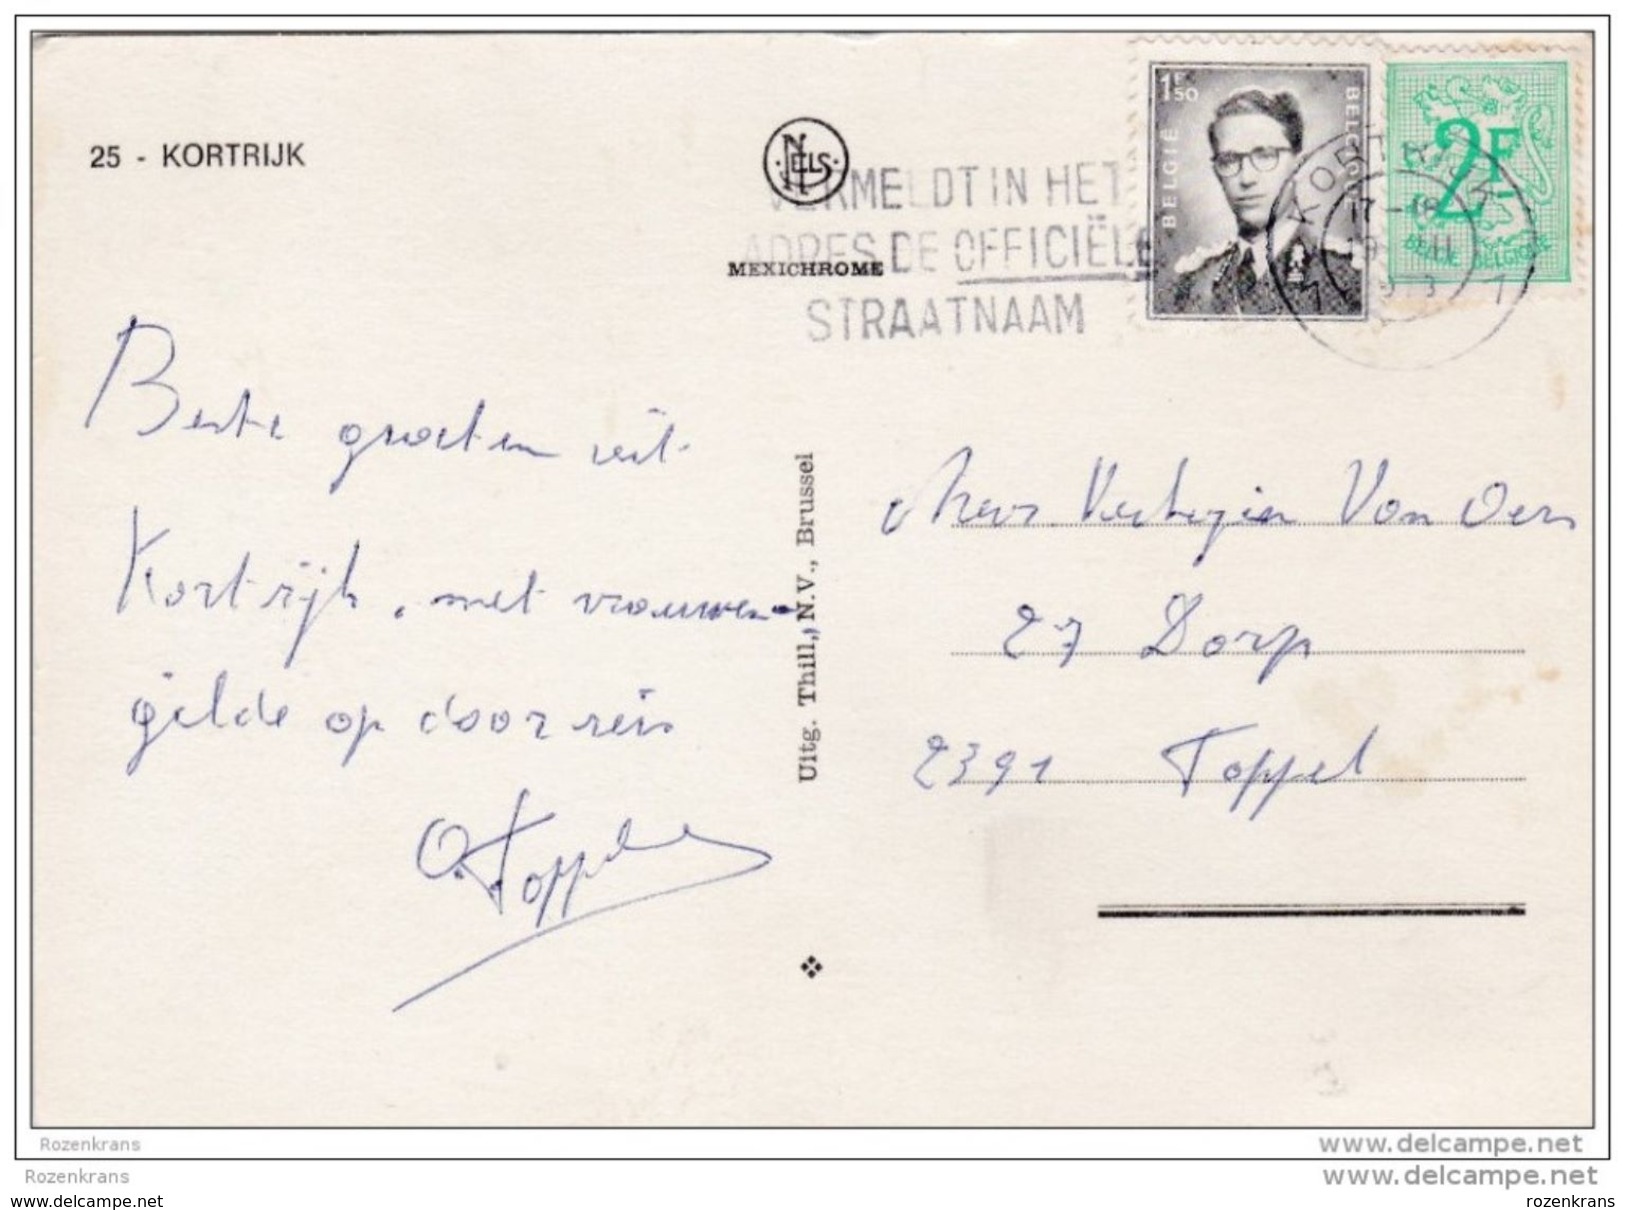 25 - KORTRIJK
NELS
MEXICHROME
VERMELDT IN HET
ADRES DE OFFICIËLE
STRAATNAAM
1F50
BELGIË
BELGIQUE
2F
BELGIE BELGIQUE
KORTRIJK
17-18
1 1
Beste groeten uit
Kortrijk, met vrouwen-
gilde op doorreis
O. Toppel
Uitg. Thill, N.V., Brussel
Mevr Van Oers
27 Dorp
2391 Poppel
Rozenkrans
www.delcampe.net
Rozenkrans
www.delcampe.net
www.delcampe.net
rozenkrans